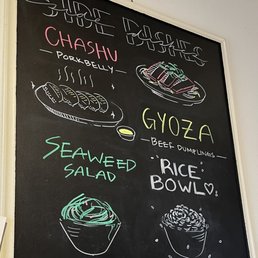 SIDE DISHES
CHASHU
PORKBELLY
GYOZA
BEEF DUMPLINGS
SEAWEED
SALAD
RICE
BOWL